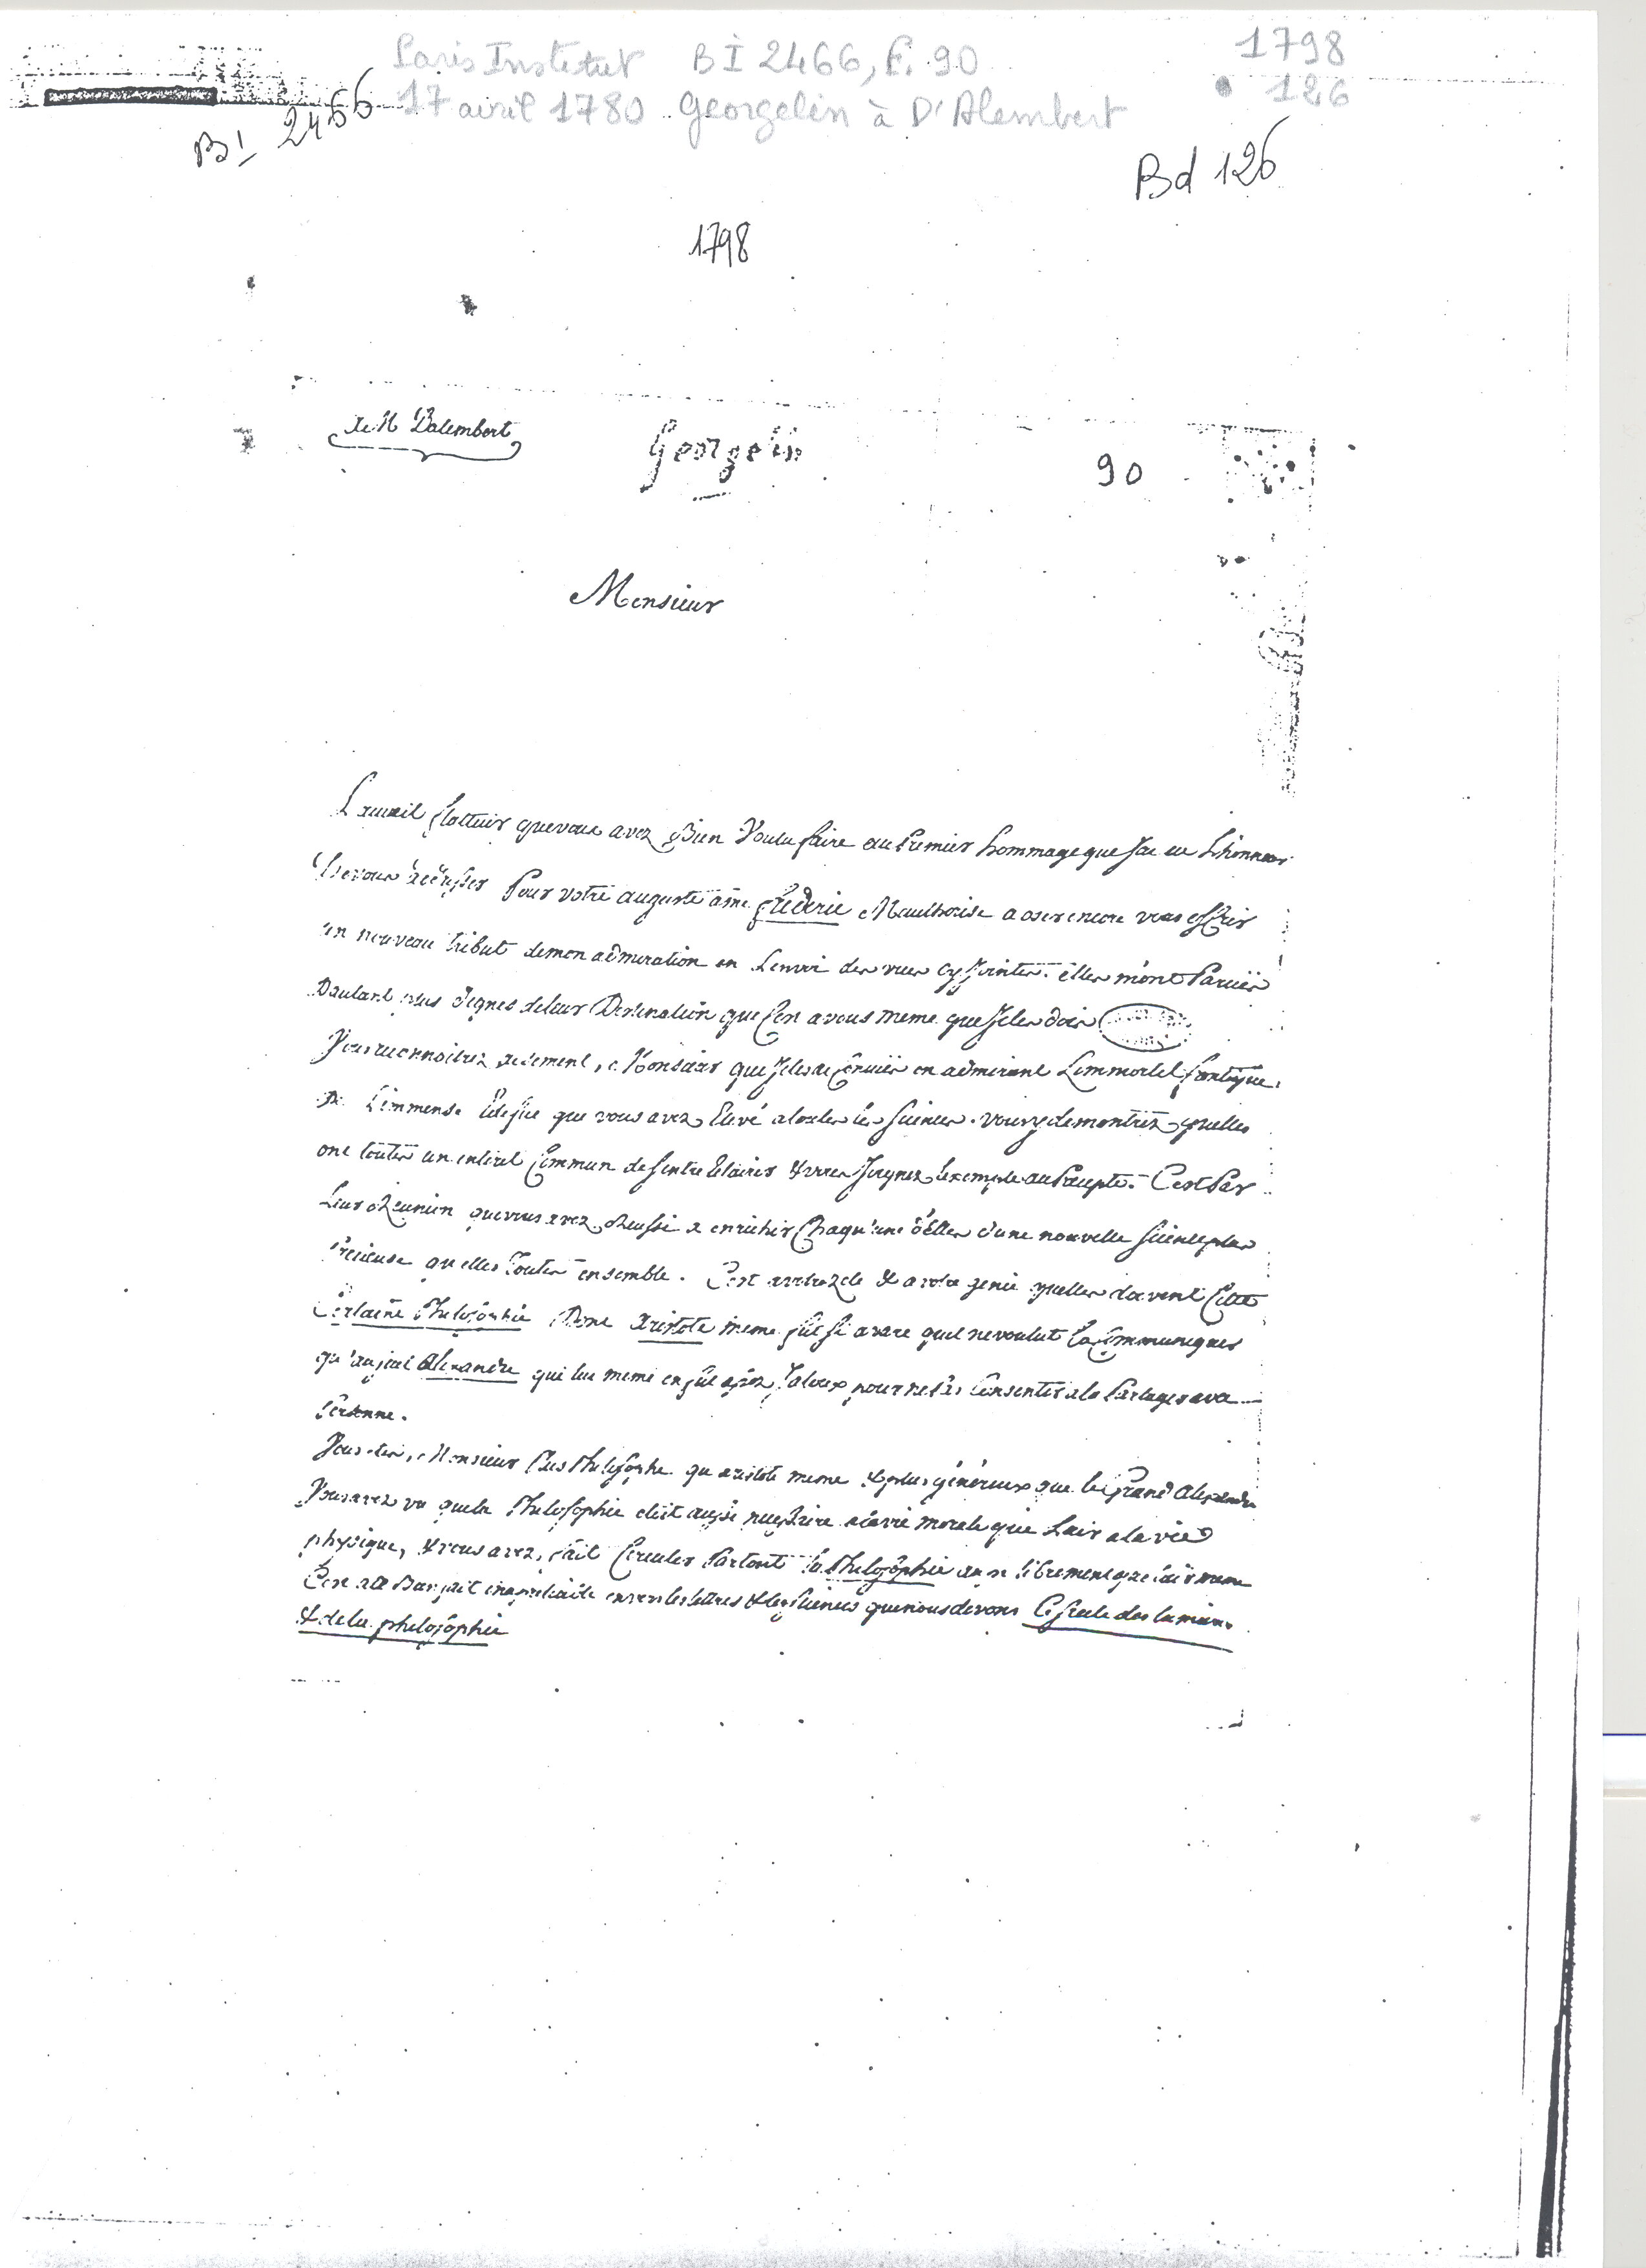 Paris Institut BI 2466, f. 90 1798
17 avril 1780 Georgelin à D'Alembert 126
BI 2466
Bd 126
1798
de M Dalembert
Georgelin
90
Monsieur
Lacueil flatteur que vous avez Bien Voulu faire au Premier hommage que Jai eu Lhonneur
De vous adresser Pour votre auguste ami frederic Mauthorise a oser encore vous offrir
un nouveau tribut de mon admiration en Lenvoi des vues cy Jointes. elles m'ont Paruës
Dautant plus Dignes de leur Destination que Cest a vous meme que Je les dois
Vous reconnoitrez aisement, Monsieur que Je les ai en admirant Limmortel frontispice
De Limmense Edifice que vous avez Elevé a toutes les sciences. vous y demontrez quelles
ont toutes un interet Commun de sentre Eclairer & vous Joignez Lexemple au Precepte. C'est Par
Leur Réunion que vous avez Reussi a enrichir Chaqu'une d'Elles d'une nouvelle science plus
Precieuse qu elles Toutes ensemble. C'est a votre zele & a votre genie quelles doivent Cette
Certaine Philosophie Dont Aristote meme fut si avare quil ne voulut La Communiquer
qu'au seul Alexandre qui lui meme en fut assez Jaloux pour ne Pas Consentir a la Partager avec
Personne.
Vous etes, Monsieur Plus Philosophe qu aristote meme & plus généreux que le Grand Alexandre
Vous avez vu que la Philosophie etoit aussi necessaire a la vie morale que Lair a la vie
physique, & vous avez fait Circuler Partout la Philosophie aussi librement que l'air meme
C'est a ce Bienfait inappretiable envers les lettres & les sciences que nous devons Le siecle des lumieres
& de la philosophie